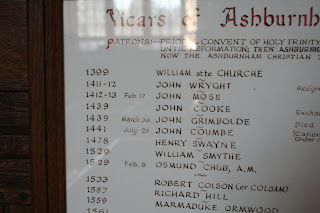 Vicars of Ashburnh
PATRONS:- PRIOR & CONVENT OF HOLY TRINITY
UNTIL REFORMATION; THEN ASHBURNH
NOW THE ASHBURNHAM CHRISTIAN T
1399 WILLIAM atte CHURCHE
1411-12 JOHN WRYGHT Resign
1412-13 Feb 17 JOHN MOSE
1439 JOHN COOKE Excha
1439 March 30 JOHN GRIMBOLDE Died
1441 July 25 JOHN COUMBE [Canon
1478 HENRY SWAYNE Order
1529 WILLIAM SMYTHE
1529 Feb 8 OSMUND CHUB, A.M.
1533 ROBERT COLSON (or COLSAM)
1557 RICHARD HILL
1559 MARMADUKE ORMWOOD
1561